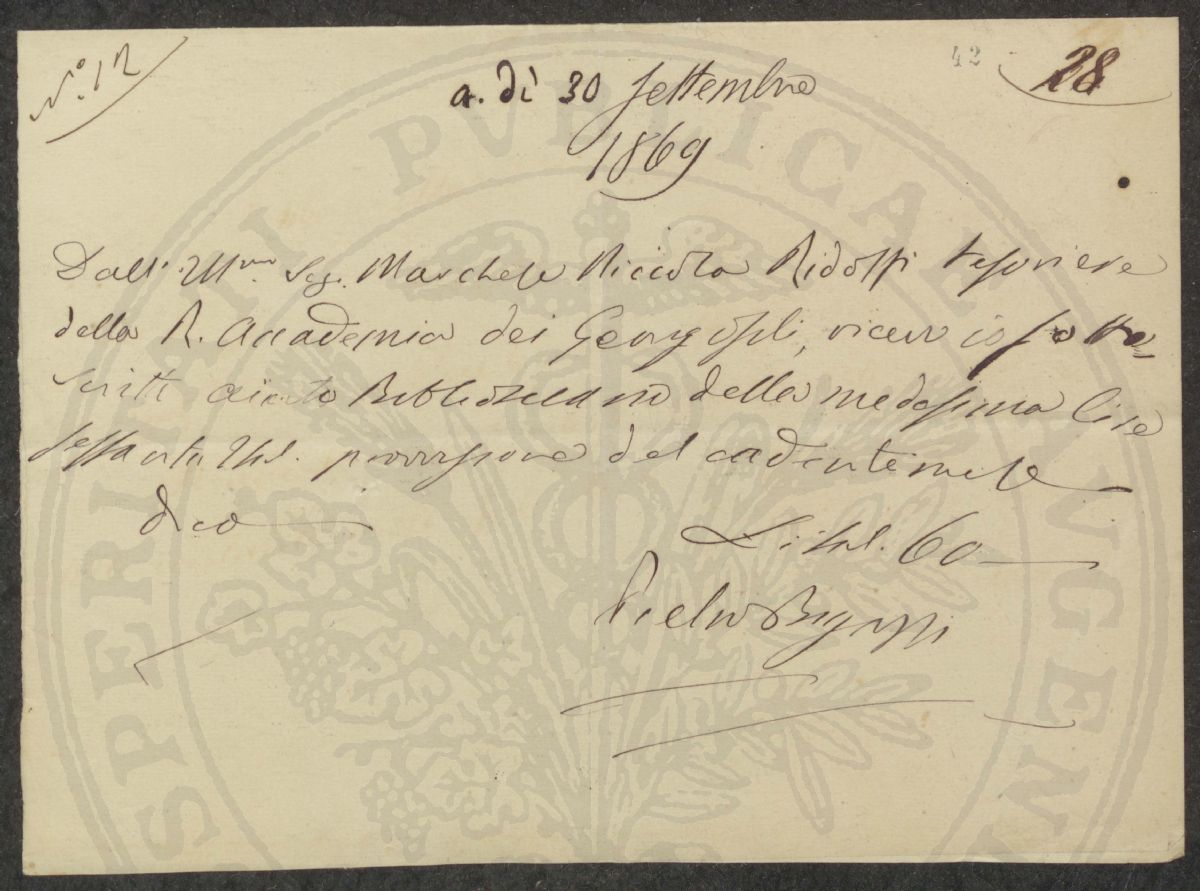 N.° 12
42
28
a. dì 30 Settembre
1869
Dall' Ill.mo Sig. Marchese Niccolò Ridolfi Tesoriere
della R. Accademia dei Georgofili, ricevo io sotto-
scritto aiuto Bibliotecario della medesima lire
sessanta Ital. provvisione del cadente mese
dico
L. ital. 60
Pietro Bigazzi
PROSPERITATI PVBLICAE AVGEN